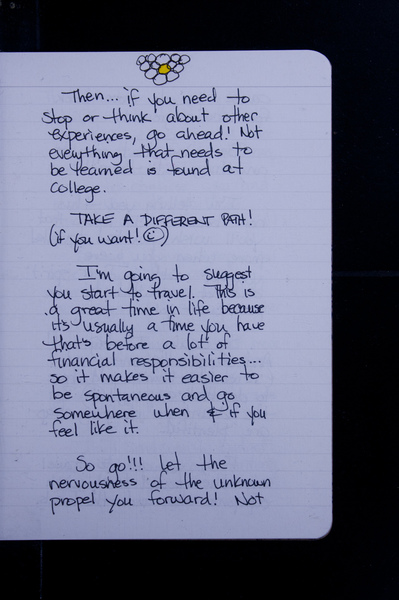 Then... if you need to
stop or think about other
experiences, go ahead! Not
everything that needs to
be learned is found at
college.
TAKE A DIFFERENT PATH!
(if you want! ☺)
I'm going to suggest
you start to travel. This is
a great time in life because
it's usually a time you have
that's before a lot of
financial responsibilities...
so it makes it easier to
be spontaneous and go
somewhere when & if you
feel like it.
So go!!! Let the
nervousness of the unknown
propel you forward! Not